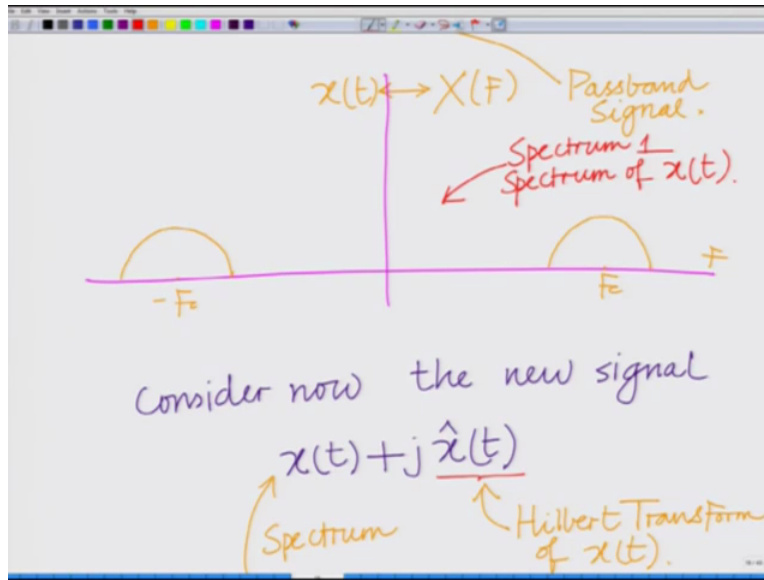 x(t) ↔ X(F)
Passband
Signal.
Spectrum 1
Spectrum of x(t).
F
-Fc
Fc
Consider now the new signal
x(t) + j x̂(t)
Spectrum
Hilbert Transform
of x(t).